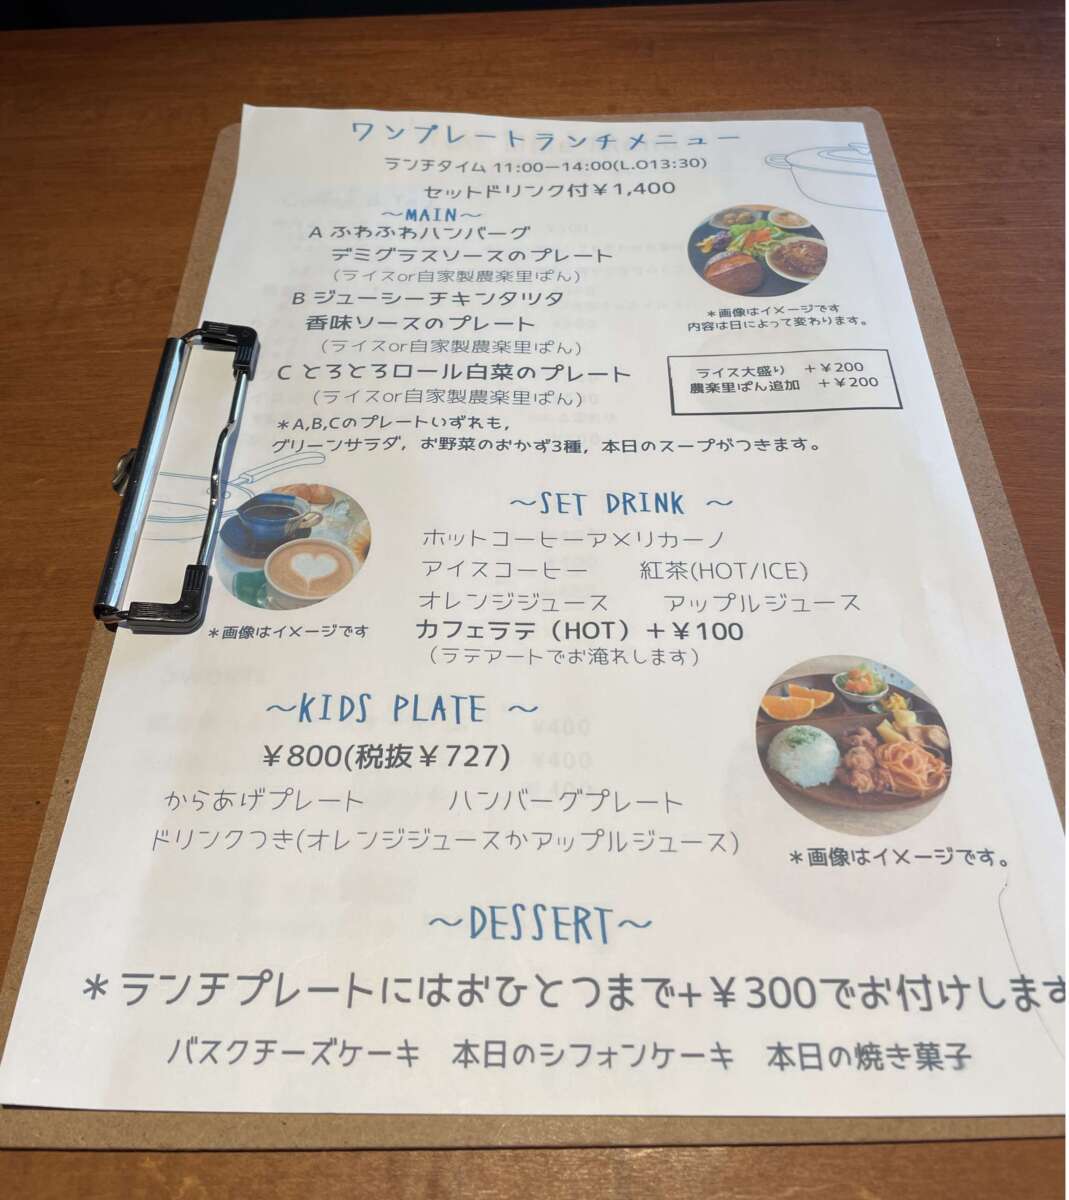 ワンプレートランチメニュー
ランチタイム 11:00ー14:00(L.O13:30)
セットドリンク付￥1,400
～MAIN～
A ふわふわハンバーグ
デミグラスソースのプレート
(ライスor自家製農楽里ぱん)
B ジューシーチキンタツタ
香味ソースのプレート
(ライスor自家製農楽里ぱん)
C とろとろロール白菜のプレート
(ライスor自家製農楽里ぱん)
＊A,B,Cのプレートいずれも,
グリーンサラダ, お野菜のおかず3種, 本日のスープがつきます。
＊画像はイメージです
内容は日によって変わります。
ライス大盛り ＋￥200
農楽里ぱん追加 ＋￥200
～SET DRINK ～
ホットコーヒーアメリカーノ
アイスコーヒー 紅茶(HOT/ICE)
オレンジジュース アップルジュース
カフェラテ（HOT）＋￥100
（ラテアートでお淹れします）
＊画像はイメージです
～KIDS PLATE ～
￥800(税抜￥727)
からあげプレート ハンバーグプレート
ドリンクつき(オレンジジュースかアップルジュース)
＊画像はイメージです。
～DESSERT～
＊ランチプレートにはおひとつまで+￥300でお付けします
バスクチーズケーキ 本日のシフォンケーキ 本日の焼き菓子